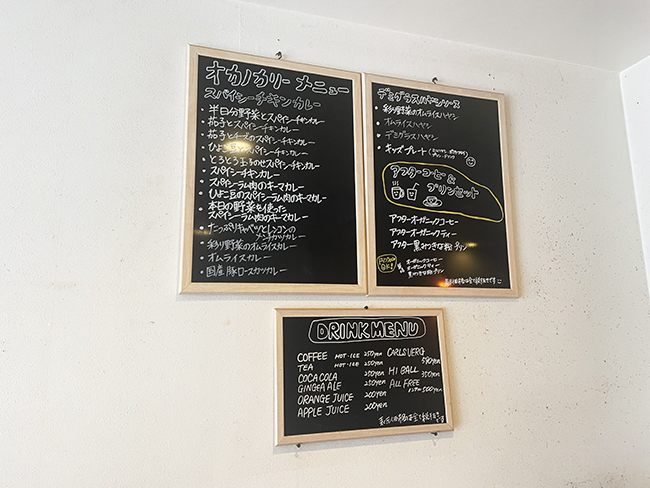 オカノカリー メニュー
スパイシーチキンカレー
・半日分野菜とスパイシーチキンカレー
・茄子とスパイシーチキンカレー
・茄子とチーズのスパイシーチキンカレー
・ひよこ豆のスパイシーチキンカレー
・とろとろ玉子のせスパイシーチキンカレー
・スパイシーチキンカレー
・スパイシーラム肉のキーマカレー
・ひよこ豆のスパイシーラム肉のキーマカレー
・本日の野菜を使った
スパイシーラム肉のキーマカレー
・たっぷりキャベツとレンコンの
メンチカツカレー
・彩り野菜のオムライスカレー
・オムライスカレー
・国産豚ロースカツカレー
デミグラスハヤシソース
・彩り野菜のオムライスハヤシ
・オムライスハヤシ
・デミグラスハヤシ
・キッズプレート
アフターコーヒー&
プリンセット
アフターオーガニックコーヒー
アフターオーガニックティー
アフター黒みつきな粉プリン
オーガニックコーヒー
オーガニックティー
黒みつきな粉プリン
DRINK MENU
COFFEE HOT・ICE 250yen
TEA HOT・ICE 250yen
COCA COLA 250yen
GINGER ALE 250yen
ORANGE JUICE 200yen
APPLE JUICE 200yen
CARLSBERG
HI BALL 350yen
ALL FREE
500yen